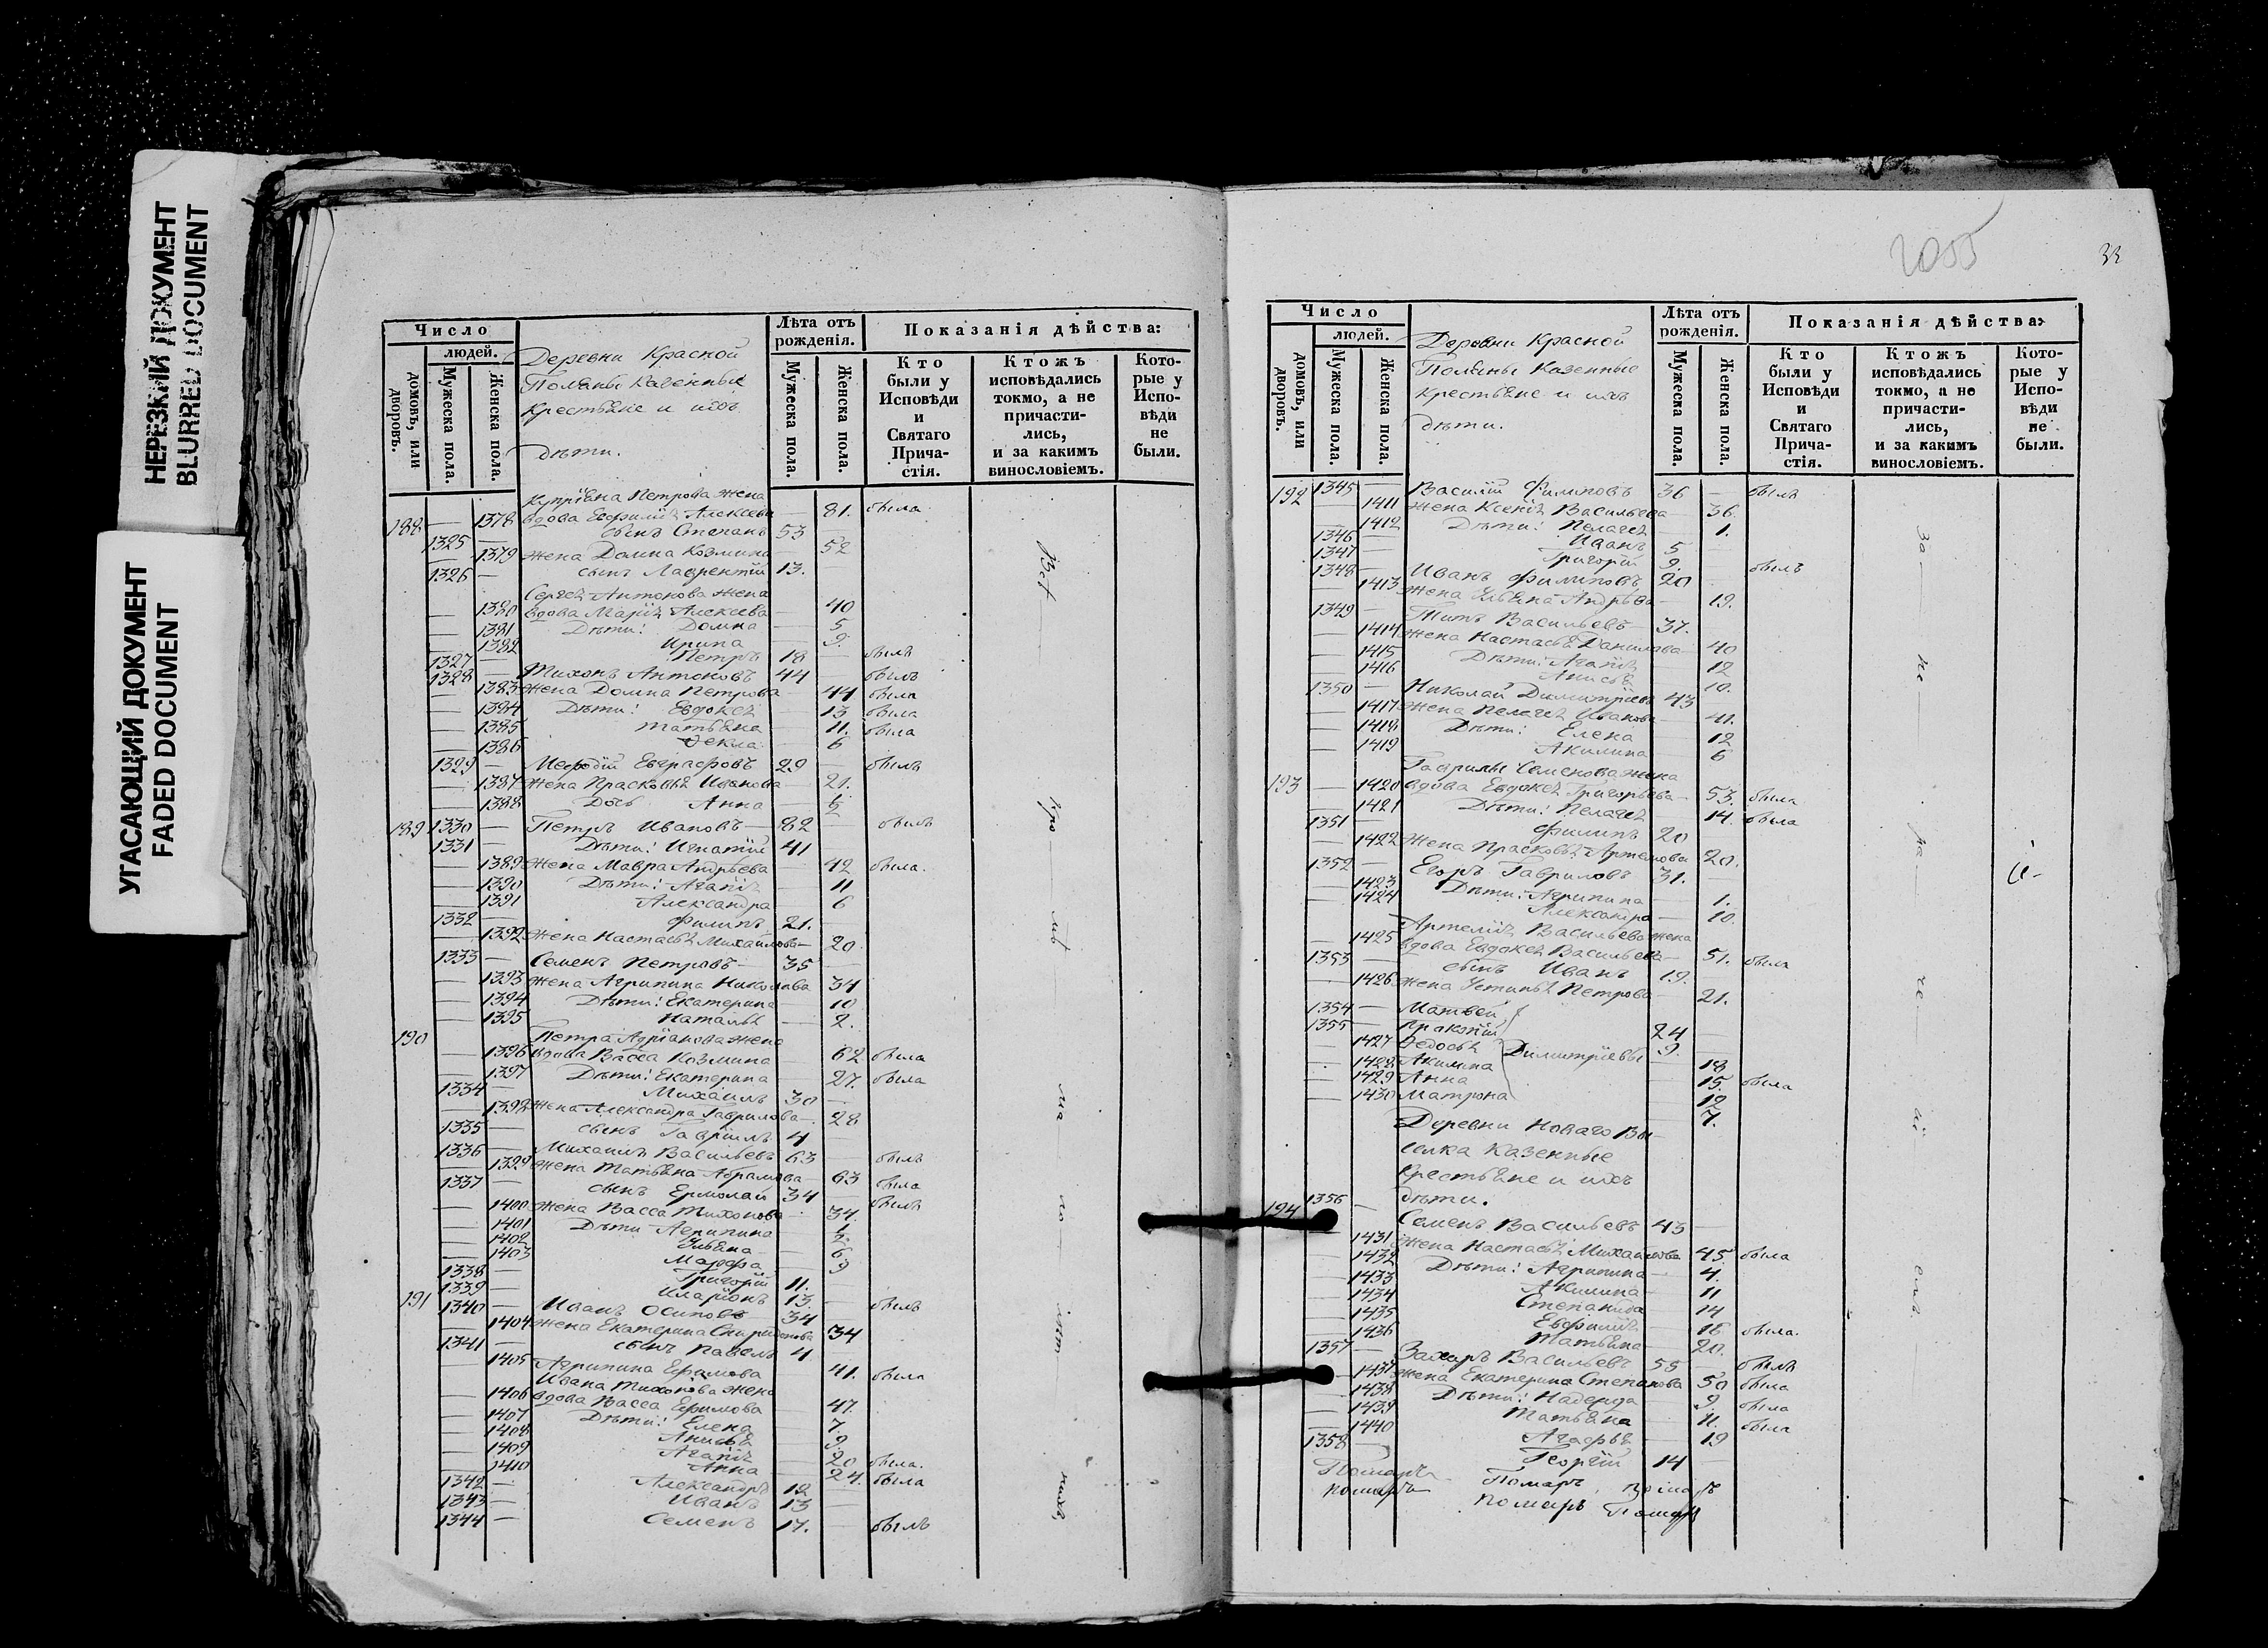 НЕРЕЗКИЙ ДОКУМЕНТ
BLURRED DOCUMENT
УГАСАЮЩИЙ ДОКУМЕНТ
FADED DOCUMENT
Число
людей.
домовъ, или дворовъ.
Мужеска пола.
Женска пола.
Деревни Красной
Поляны Казенные
Крестьяне и ихъ
дѣти.
Лѣта отъ рожденія.
Мужеска пола.
Женска пола.
Показанія дѣйства:
Кто были у Исповѣди и Святаго Прича-стія.
Ктожъ исповѣдались токмо, а не причасти-лись, и за какимъ винословіемъ.
Кото-рые у Испо-вѣди не были.
Купріяна Петрова жена
188 — 1378 вдова Евфимія Алексѣева — 81. была
1325 — сынъ Степанъ 53
— 1379 жена Домна Козмина — 52
1326 — сынъ Лаврентій 13.
Сергея Антонова жена
— 1380 вдова Марія Алексѣева — 40
— 1381 Дѣти: Домна — 5
— 1382 Ирина — 9.
1327 — Петръ 18 — былъ
1328 — Тихонъ Антоновъ 44 — былъ
— 1383 жена Домна Петрова — 44 была
— 1384 Дѣти: Евдокея — 13 была
— 1385 Татьяна — 11. была
— 1386 Фекла — 6
1329 — Меѳодій Евграфовъ 29 — былъ
— 1387 жена Прасковья Иванова — 21.
— 1388 дочь Анна —
189 1330 — Петръ Ивановъ — 82 — былъ
1331 — Дѣти: Игнатій 41
— 1389 жена Мавра Андрѣева — 42 была.
— 1390 Дѣти: Агапія — 11
— 1391 Александра — 6
1332 — Филипъ 21.
— 1392 жена Настасья Михайлова — 20
1333 — Семенъ Петровъ — 35
— 1393 жена Агрипина Николаева 34
— 1394 Дѣти: Екатерина 10
— 1395 Наталья — 2.
190 Петра Адріанова жена
— 1396 вдова Васса Козмина — 62 была
— 1397 Дѣти: Екатерина — 27. была
1334 — Михаилъ 30 —
— 1398 жена Александра Гаврилова — 28
1335 — сынъ Гавріилъ 4
1336 — Михаилъ Васильевъ 63 — былъ
— 1399 жена Татьяна Абрамова — 63 была
1337 — сынъ Ермолай 34 — былъ
— 1400 жена Васса Тихонова — 34.
— 1401 Дѣти Агрипина
— 1402 Ульяна — 6
— 1403 Марфа — 9
1338 — Григорій 11.
1339 — Иларіонъ 13.
191 1340 — Иванъ Осиповъ 34 — былъ
— 1404 жена Екатерина Спиридонова 34
1341 — сынъ Павелъ 4
— 1405 Агрипина Ефрамова — 41. была
Ивана Тихонова жена
— 1406 вдова Васса Ефимова — 47.
— 1407 Дѣти: Елена — 7.
— 1408 Анисья — 9
— 1409 Агапія — 20 была.
— 1410 Анна — 24. была
1342 — Александръ 12
1343 — Иванъ 13
1344 — Семенъ 17. — былъ
2055
33
Число
людей.
домовъ, или дворовъ.
Мужеска пола.
Женска пола.
Деревни Красной
Поляны Казенные
Крестьяне и ихъ
дѣти.
Лѣта отъ рожденія.
Мужеска пола.
Женска пола.
Показанія дѣйства:
Кто были у Исповѣди и Святаго Прича-стія.
Ктожъ исповѣдались токмо, а не причасти-лись, и за какимъ винословіемъ.
Кото-рые у Испо-вѣди не были.
192 1345 — Василій Филиповъ 36 — былъ
— 1411 жена Ксенія Васильева — 36.
— 1412 Дѣти: Пелагея — 1.
1346 — Иванъ 5
1347 — Григорій 9.
1348 — Иванъ Филиповъ 20 — былъ
— 1413 жена Ульяна Андрѣева — 19.
1349 — Титъ Васильевъ — 37.
— 1414 жена Настасья Данилова — 40
— 1415 Дѣти: Агапія 12
— 1416 Анисья 10.
1350 — Николай Димитріевъ 43
— 1417 жена Пелагея Иванова — 41.
— 1418 Дѣти: Елена — 12
— 1419 Акилина — 6
Гаврилы Семенова жена
193 — 1420 вдова Евдокея Григорьева — 53. была
— 1421 Дѣти: Пелагея — 14. была
1351 — Филипъ 20
— 1422 жена Прасковья Артемова 20.
1352 — Егоръ Гавриловъ 31.
— 1423 Дѣти: Агрипина — 1.
— 1424 Александра — 10.
Артемія Васильева жена
— 1425 вдова Евдокея Васильева — 51. была
1353 — сынъ Иванъ 19.
— 1426 жена Устинья Петрова — 21.
1354 — Матвей 24
1355 — Прокопій 9.
— 1427 Ѳедосья Димитріевы 18
1428 Акилина 15. была
1429 Анна 12
1430 Матрона 7.
Деревни Новаго Вы-
селка Казенные
Крестьяне и ихъ
дѣти.
194 1356 — Семенъ Васильевъ 43 —
— 1431 жена Настасья Михайлова 45. была
— 1432 Дѣти: Агрипина — 4.
— 1433 Акилина — 11
— 1434 Степанида — 14
— 1435 Евфимія — 16 была.
— 1436 Татьяна — 20.
1357 — Захаръ Васильевъ 55 — былъ
— 1437 жена Екатерина Степанова 50 была
— 1438 Дѣти: Надежда — 9. была
— 1439 Татьяна — 11. была
— 1440 Агафья — 19
1358 — Георгій 14 —
Помаръ Помаръ
помаръ помаръ Помаръ